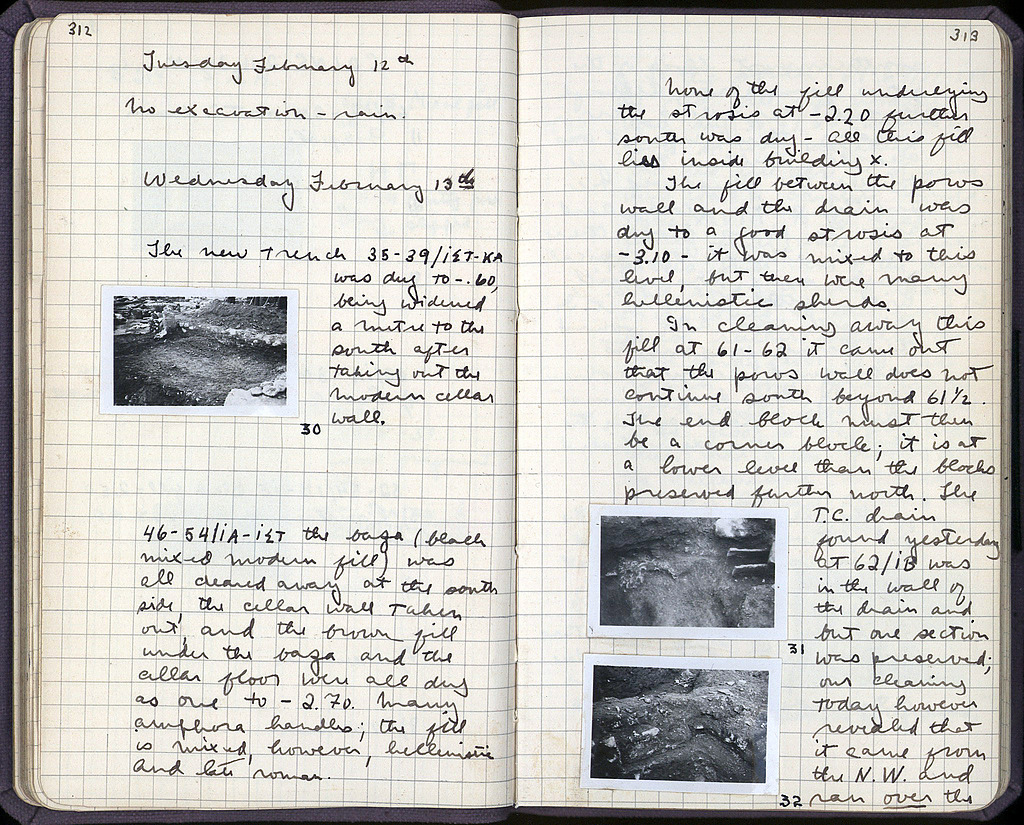 312
Tuesday February 12th
No excavation - rain.
Wednesday February 13th
The new trench 35-39/ΙΣΤ-ΚΑ
was dug to -.60,
being widened
a metre to the
south after
taking out the
modern cellar
wall.
30
46-54/ΙΑ-ΙΣΤ the baza (black
mixed modern fill) was
all cleared away at the south
side, the cellar wall taken
out, and the brown fill
under the baza and the
cellar floor were all dug
as one to -2.70. Many
amphora handles; the fill
is mixed, however, hellenistic
and late roman.
313
None of the fill underlying
the strosis at -2.20 further
south was dug - all this fill
lies inside building X.
The fill between the poros
wall and the drain was
dug to a good strosis at
-3.10 - it was mixed to this
level, but there were many
hellenistic sherds.
In cleaning away this
fill at 61-62 it came out
that the poros wall does not
continue south beyond 61½.
The end block must then
be a corner block; it is at
a lower level than the blocks
preserved further north. The
T.C. drain
found yesterday
at 62/ΙΒ was
in the wall of
the drain and
but one section
was preserved;
our cleaning
today however
revealed that
it came from
the N.W. and
ran over the
31
32